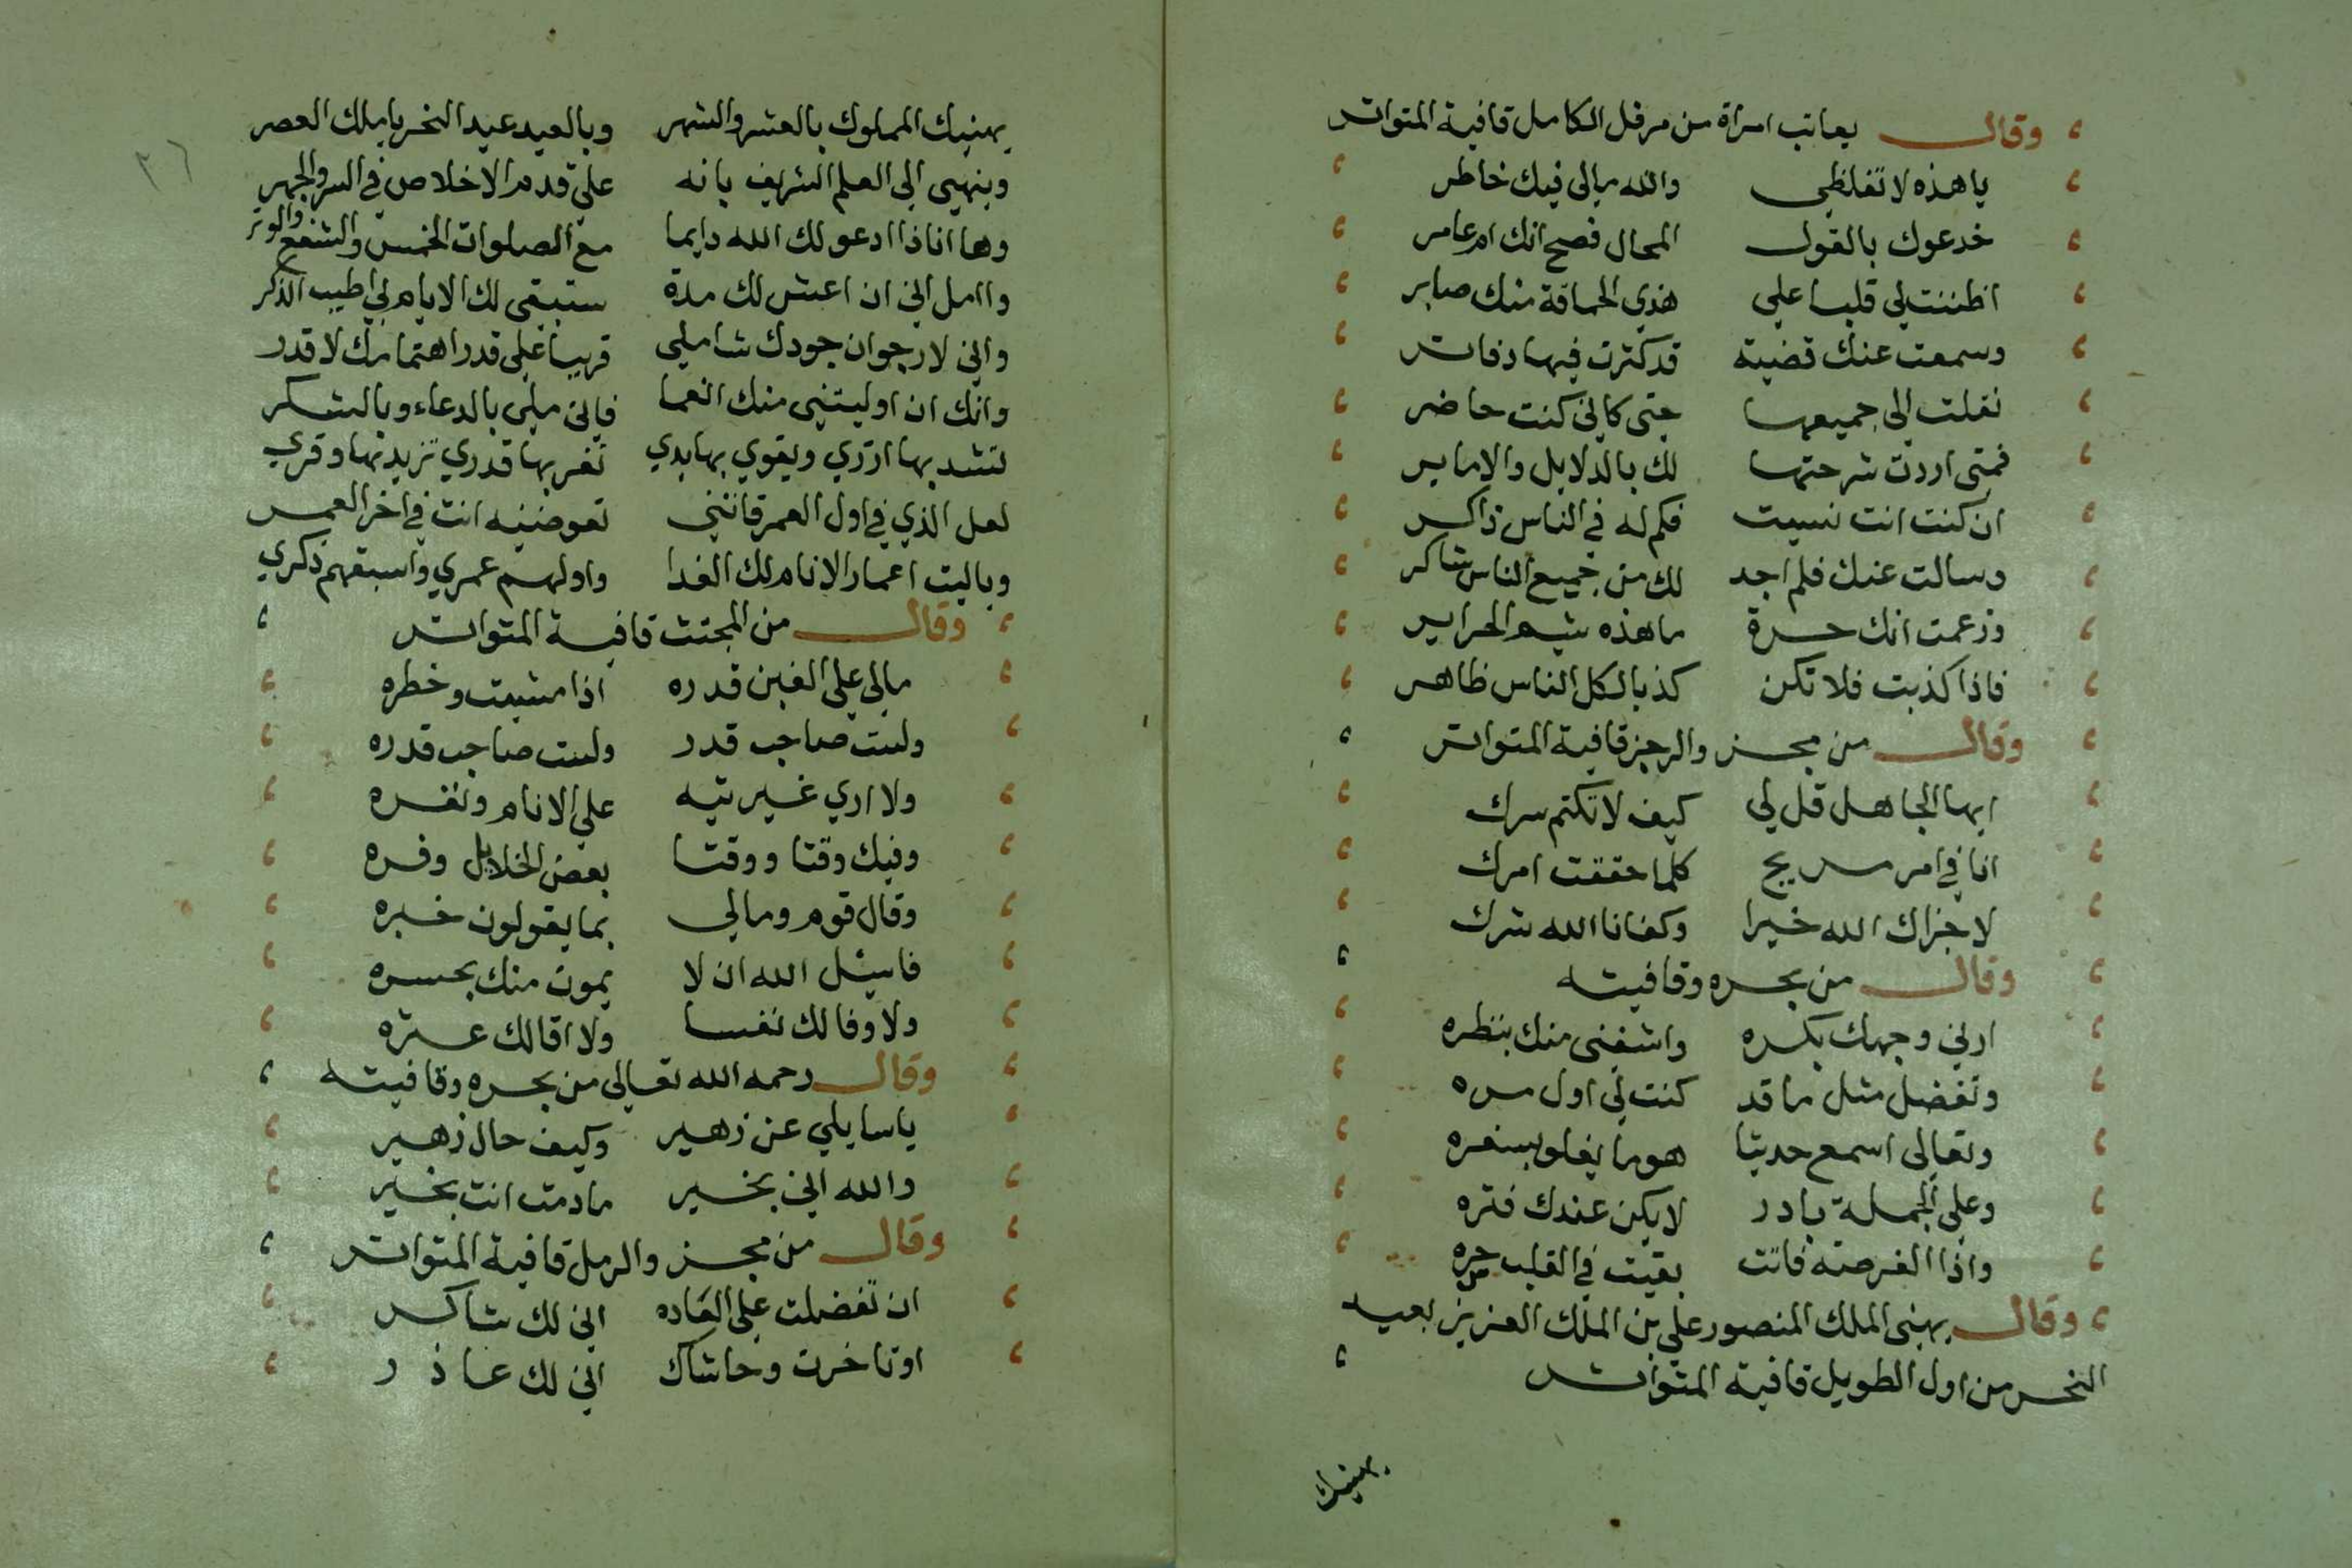 وقال يعاتب امراة من مرفل الكامل قافية المتواتر
يا هذه لا تغلطي والله مالي فيك خاطر
خدعوك بالقول المحال فصح انك ام عامر
اظننت لي قلبا علي هذي الحماقة منك صابر
وسمعت عنك قضية قد كثرت فيها دفاتر
نقلت الي جميعها حتى كاني كنت حاضر
فمتى اردت شرحتها لك بالدلايل والاماير
ان كنت انت نسيت فكم له في الناس ذاكر
وسالت عنك فلم اجد لك من جميع الناس شاكر
وزعمت انك حرة ما هذه شيم الحراير
فاذا كذبت فلا تكن كذبا لكل الناس ظاهر
وقال من مجزو الرجز قافية المتواتر
ايها الجاهل قل لي كيف لا تكتم سرك
انا في امر مريج كلما حققت امرك
لا جزاك الله خيرا وكفانا الله شرك
وقال من بحره وقافيته
ارني وجهك بكره واشفني منك بنظره
وتفضل مثل ما قد كنت لي اول مره
وتعالى اسمع حديثا هو ما يغلو بسفره
وعلى الجملة بادر لا يكن عندك فتره
واذا الفرصة فاتت بقيت في القلب حسره
وقال يهني الملك المنصور علي بن الملك العزيز بعيد
النحر من اول الطويل قافية المتواتر
يهنيك
٢٦
يهنيك المملوك بالعشر والشهر وبالعيد عيد النحر يا ملك العصر
وينهي الى العلم الشريف بانه علي قدم الاخلاص في السر والجهر
وها انا ذا ادعو لك الله دايما مع الصلوات الخمس والشفع والوتر
واامل اني ان اعيش لك مدة ستبقى لك الايام لي اطيب الذكر
واني لارجو ان جودك شاملي قريبا على قدر اهتمامك لا قدر
وانك ان اوليتني منك انعما فاني ملي بالدعاء وبالشكر
لتشد بها ازري ويقوي بها يدي تغر بها قدري تزيد بها وقري
لعل الذي في اول العمر فاتني تعوضنيه انت في اخر العمر
وياليت اعمار الانام لك الفدا واولهم عمري واسبقهم ذكري
وقال من المجتث قافية المتواتر
مالي على الغبن قدره اذا مشيت وخطره
ولست صاحب قدر ولست صاحب قدره
ولا اري غير تيه علي الانام ونفره
وفيك وقتا ووقتا بعض الخلايل وفره
وقال قوم ومالي بما يقولون خبره
فاسئل الله ان لا يموت منك بحسره
ولا وفا لك نفسا ولا اقالك عثره
وقال رحمه الله تعالى من بحره وقافيته
يا سايلي عن زهير وكيف حال زهير
والله اني بخير ما دمت انت بخير
وقال من مجزو الرمل قافية المتواتر
ان تفضلت على العاده اني لك شاكر
او تاخرت وحاشاك اني لك عاذر